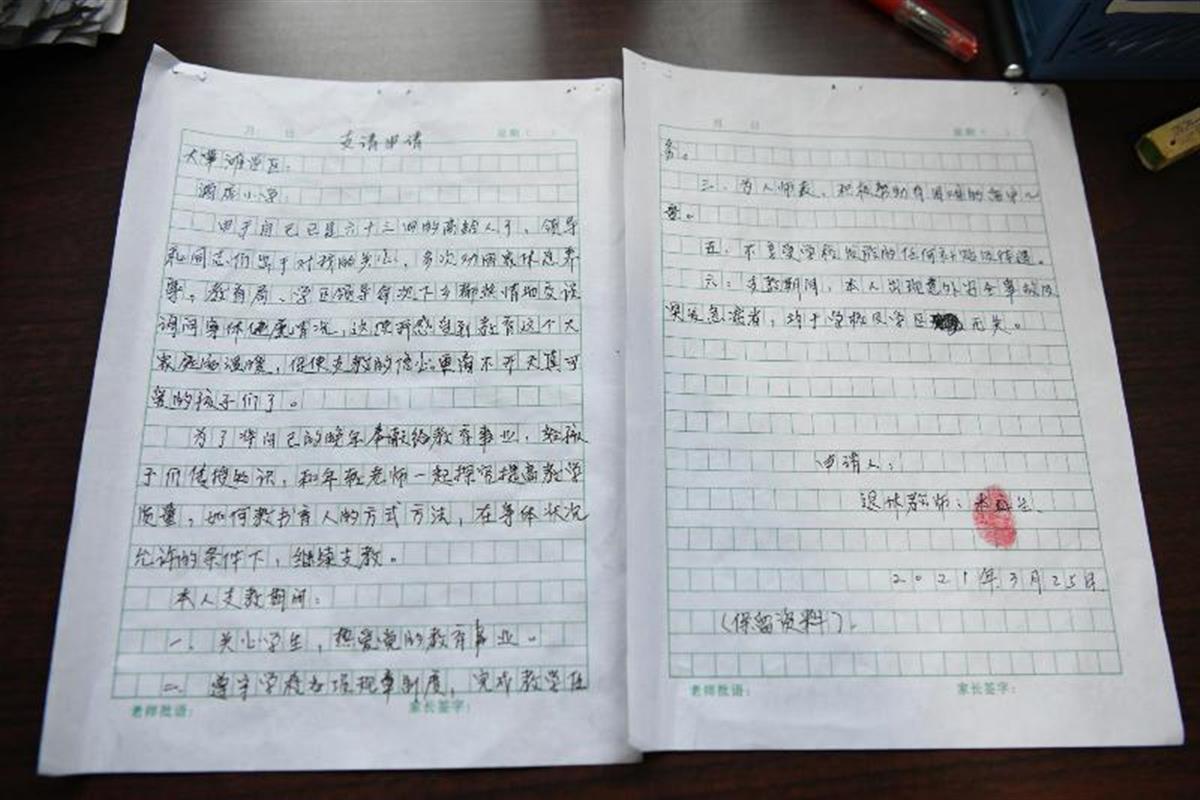 月 日 星期（ ）
支请申请
大草滩学区：
酒店小学：
由于自己已是六十三四的高龄人了，领导
和同志们出于对我的关心，多次劝回家休息养
导。教育局、学区领导 下乡 情地交谈
询问身体健康情况，这使我感受到教育这个大
家庭的温暖，促使支教的信心更离不开天真可
爱的孩子们了。
为了将自己的晚年奉献给教育事业，给孩
子们传授知识，和年轻老师一起探究提高教学
质量，如何教书育人的方式方法，在身体状况
允许的条件下，继续支教。
本人支教期间：
一、关心学生，热爱党的教育事业。
二、遵守学校各项规章制度，完成教学任
老师批语： 家长签字：
月 日 星期（ ）
务。
三、为人师表，积极帮助有困难的
五、不享受学校发放的任何补贴及待遇。
六：支教期间，本人出现意外安全事故及
突发急病者，均于学校及学区无关。
申请人：
退休教师：
2021年3月25日
（保留资料）。
老师批语： 家长签字：